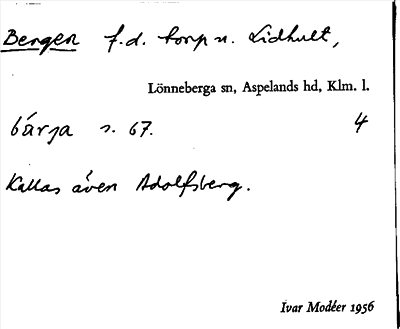 Bergen f.d. torp u. Lidhult,
Lönneberga sn, Aspelands hd, Klm. l.
bárja s. 67. 4
Kallas även Adolfsberg.
Ivar Modéer 1956